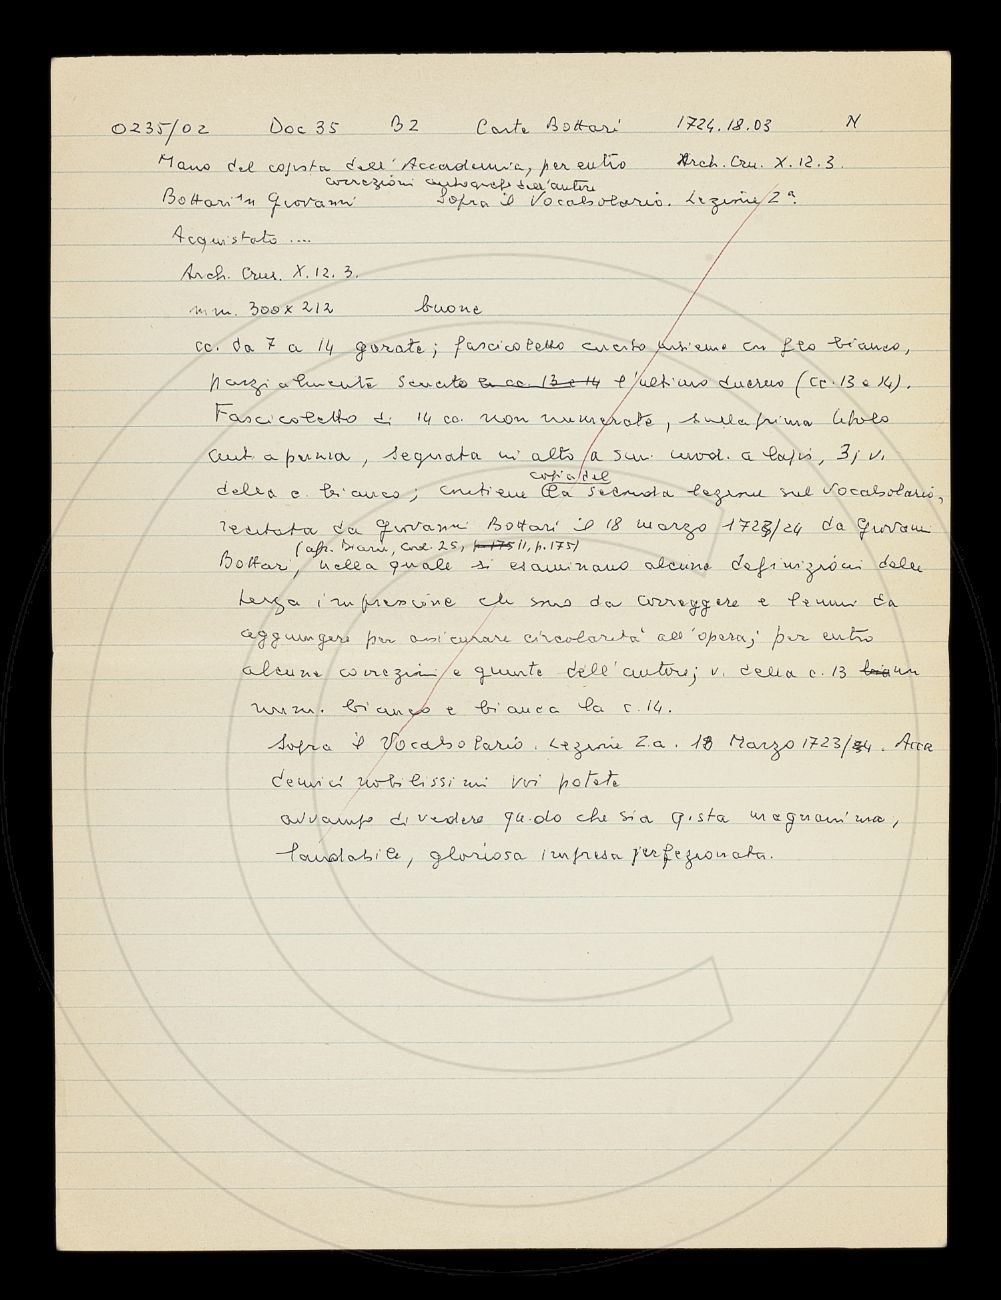 0235/02 Doc 35 B2 Carte Bottari 1724.18.03 N
Mano del copista dell'Accademia, per entro Arch. Cru. X.12.3.
correzioni autografe dell'autore
Bottari Giovanni Sopra il Vocabolario. Lezione 2ª.
Acquistato ....
Arch. Crus. X.12.3.
mm. 300x212 buone
cc. da 7 a 14 gorate; fascicoletto cucito insieme con filo bianco,
parzialmente scucito le cc. 13 e 14 l'ultimo duerno (cc. 13 e 14).
Fascicoletto di 14 cc. non numerate, sulla prima titolo
aut. a penna, segnata in alto a sin. mod. a lapis, 3; v.
copia del
della c. bianco; contiene la seconda lezione sul Vocabolario,
recitata da Giovanni Bottari il 18 marzo 1723/24 da Giovanni
(cfr. Diario, cod. 25, p. 175 II, p. 175)
Bottari, nella quale si esaminano alcune definizioni della
terza impressione che sono da correggere e lemmi da
aggiungere per assicurare circolarità all'opera; per entro
alcune correzioni e giunte dell'autore; v. della c. 13 bia un
num. bianco e bianca la c. 14.
Sopra il Vocabolario. Lezione 2.a. 18 Marzo 1723/24. Acca
demici nobilissimi voi potete
avvampo di vedere qu.do che sia q.sta magnanima,
laudabile, gloriosa impresa perfezionata.